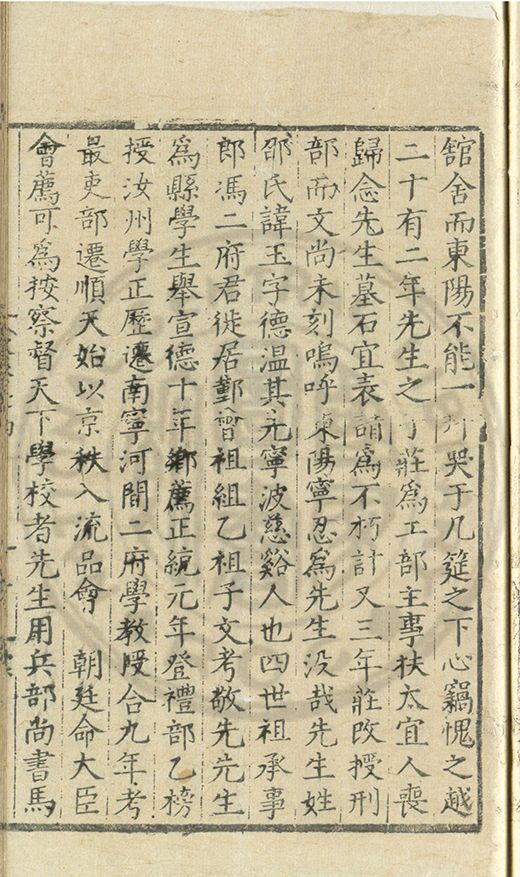 館舍而東陽不能一 哭于几筵之下心竊愧之越
二十有二年先生之子莊爲工部主事扶太宜人喪
歸念先生墓石宜表請爲不朽計又三年莊改授刑
部而文尚未刻嗚呼東陽寧忍爲先生没哉先生姓
邵氏諱玉字德温其先寧波慈谿人也四世祖承事
郎馮二府君徙居鄞曾祖組乙祖子文考敬先先生
爲縣學生舉宣德十年鄉薦正統元年登禮部乙榜
授汝州學正歷遷南寧河間二府學教授合九年考
最吏部遷順天始以京秩入流品會 朝廷命大臣
會薦可爲按察督天下學校者先生用兵部尚書馬